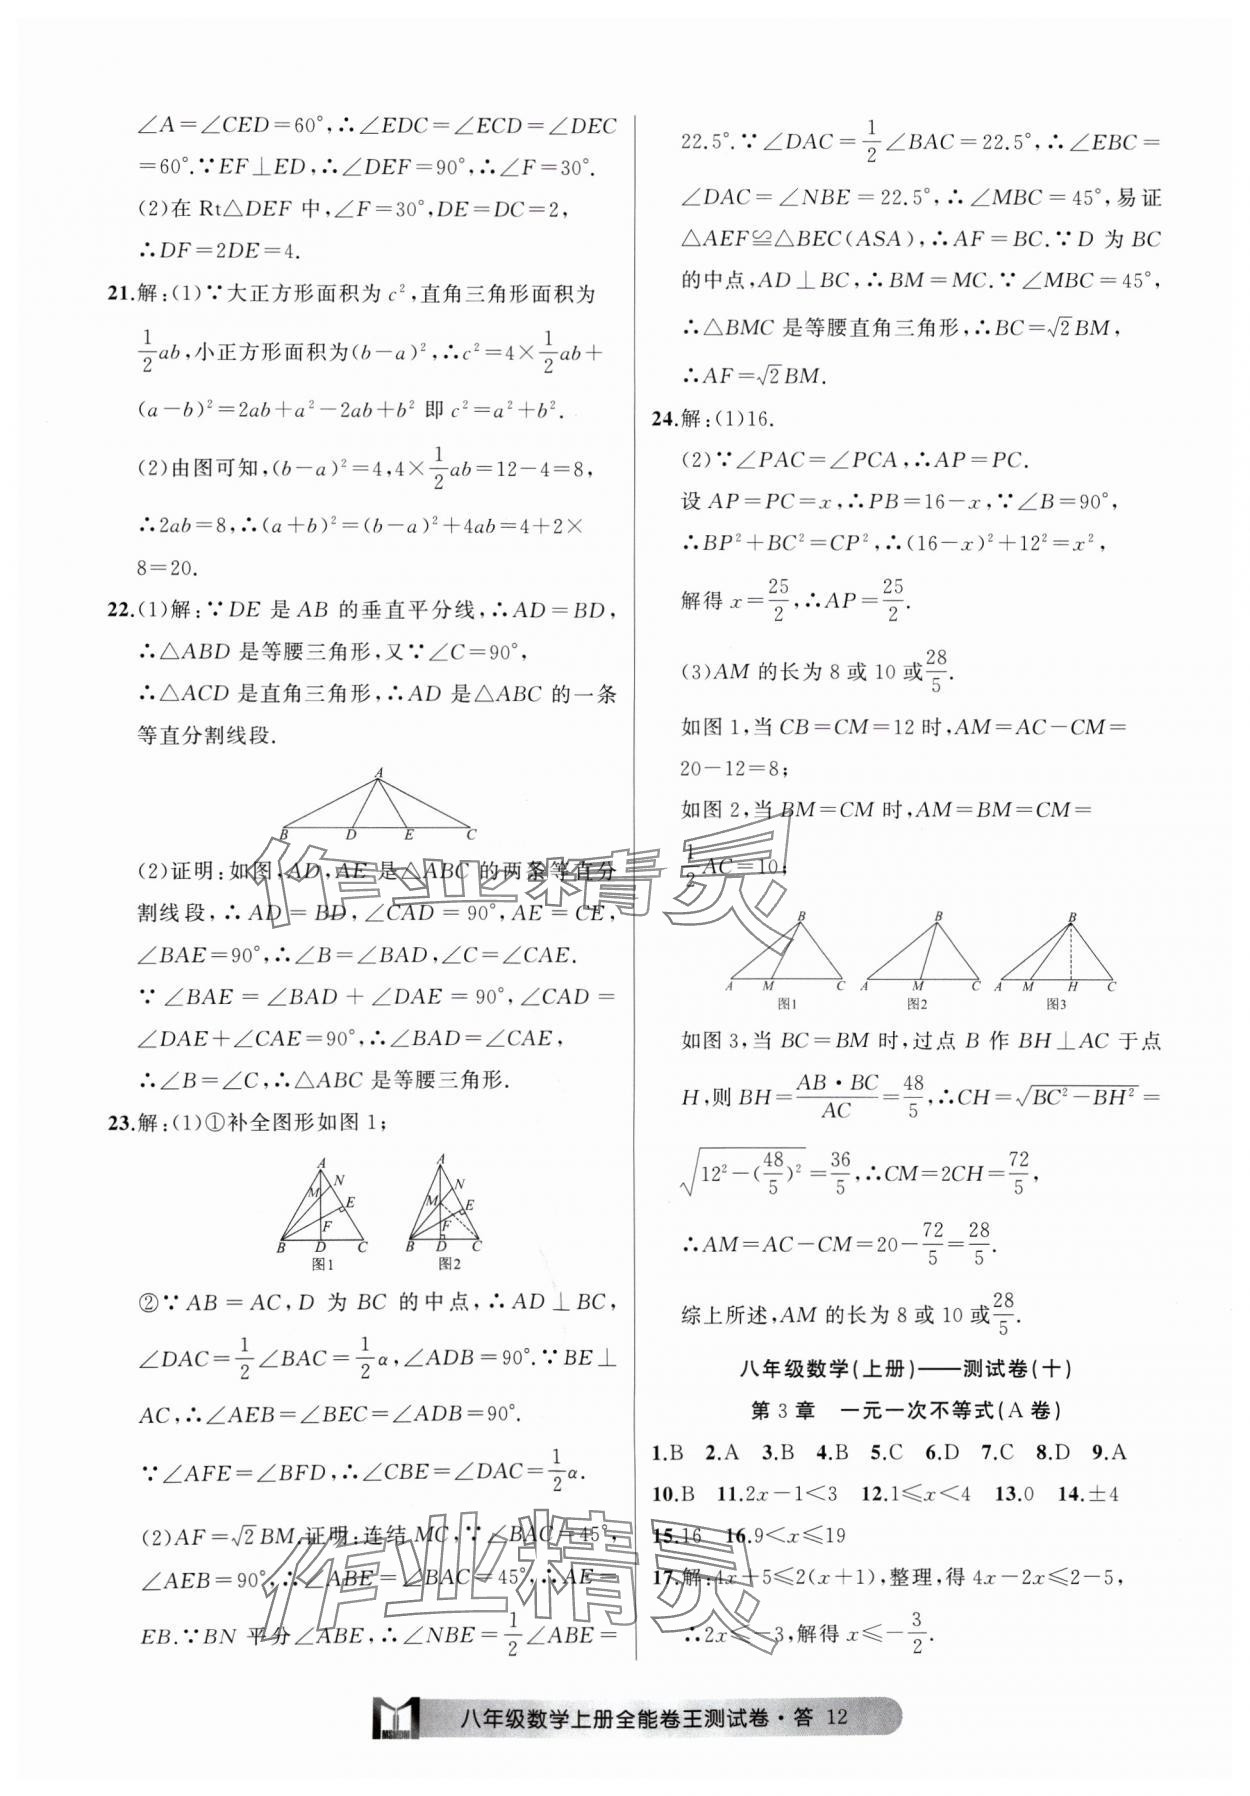 ∠A=∠CED=60°,∴∠EDC=∠ECD=∠DEC
=60°.∵EF⊥ED,∴∠DEF=90°,∴∠F=30°.
(2)在 Rt△DEF 中,∠F=30°,DE=DC=2,
∴DF=2DE=4.
21.解:(1)∵大正方形面积为 c²,直角三角形面积为
1/2ab,小正方形面积为(b-a)²,∴c²=4×1/2ab+
(a-b)²=2ab+a²-2ab+b² 即 c²=a²+b².
(2)由图可知,(b-a)²=4,4×1/2ab=12-4=8,
∴2ab=8,∴(a+b)²=(b-a)²+4ab=4+2×
8=20.
22.(1)解:∵DE 是 AB 的垂直平分线,∴AD=BD,
∴△ABD 是等腰三角形,又∵∠C=90°,
∴△ACD 是直角三角形,∴AD 是△ABC 的一条
等直分割线段.
A
B D E C
(2)证明:如图,AD,AE 是△ABC 的两条等直分
割线段,∴AD=BD,∠CAD=90°,AE=CE,
∠BAE=90°,∴∠B=∠BAD,∠C=∠CAE.
∵∠BAE=∠BAD+∠DAE=90°,∠CAD=
∠DAE+∠CAE=90°,∴∠BAD=∠CAE,
∴∠B=∠C,∴△ABC 是等腰三角形.
23.解:(1)①补全图形如图 1;
A N M E F B D C
图1
A N M E F B D C
图2
②∵AB=AC,D 为 BC 的中点,∴AD⊥BC,
∠DAC=1/2∠BAC=1/2α,∠ADB=90°.∵BE⊥
AC,∴∠AEB=∠BEC=∠ADB=90°.
∵∠AFE=∠BFD,∴∠CBE=∠DAC=1/2α.
(2)AF=√2BM,证明:连结 MC,∵∠BAC=45°,
∠AEB=90°,∴∠ABE=∠BAC=45°,∴AE=
EB.∵BN 平分∠ABE,∴∠NBE=1/2∠ABE=
22.5°.∵∠DAC=1/2∠BAC=22.5°,∴∠EBC=
∠DAC=∠NBE=22.5°,∴∠MBC=45°,易证
△AEF≌△BEC(ASA),∴AF=BC.∵D 为 BC
的中点,AD⊥BC,∴BM=MC.∵∠MBC=45°,
∴△BMC 是等腰直角三角形,∴BC=√2BM,
∴AF=√2BM.
24.解:(1)16.
(2)∵∠PAC=∠PCA,∴AP=PC.
设 AP=PC=x,∴PB=16-x,∵∠B=90°,
∴BP²+BC²=CP²,∴(16-x)²+12²=x²,
解得 x=25/2,∴AP=25/2.
(3)AM 的长为 8 或 10 或28/5.
如图 1,当 CB=CM=12 时,AM=AC-CM=
20-12=8;
如图 2,当 BM=CM 时,AM=BM=CM=
1/2AC=10;
B A M C
图1
B A M C
图2
B A M H C
图3
如图 3,当 BC=BM 时,过点 B 作 BH⊥AC 于点
H,则 BH=AB·BC/AC=48/5,∴CH=√(BC²-BH²)=
√(12²-(48/5)²)=36/5,∴CM=2CH=72/5,
∴AM=AC-CM=20-72/5=28/5.
综上所述,AM 的长为 8 或 10 或28/5.
八年级数学(上册)——测试卷(十)
第 3 章 一元一次不等式(A 卷)
1.B 2.A 3.B 4.B 5.C 6.D 7.C 8.D 9.A
10.B 11.2x-1<3 12.1≤x<4 13.0 14.±4
15.16 16.9<x≤19
17.解:4x-5≤2(x+1),整理,得 4x-2x≤2-5,
∴2x≤-3,解得 x≤-3/2.
作业精灵
作业精灵
八年级数学上册全能卷王测试卷·答 12